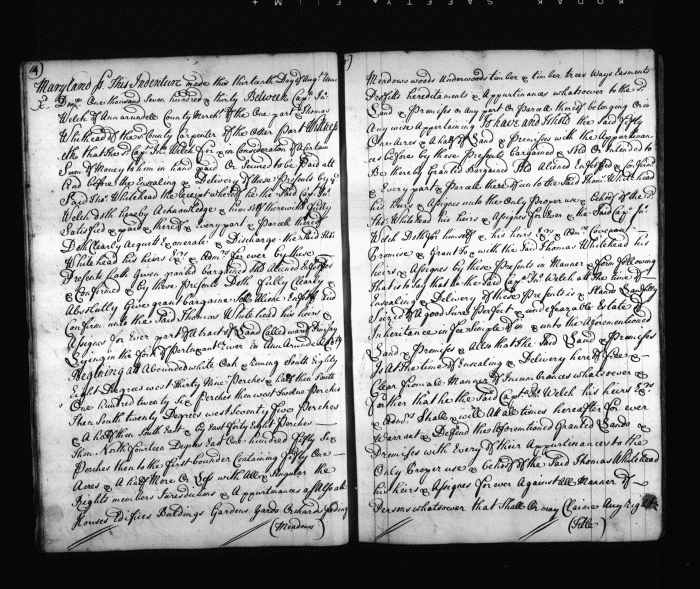 KODAK SAFETY FILM
(4)
Maryland ss This Indenture made this thirteenth Day of Aug.st Ann
Dom One thousand Seven hundred & thirty Between Cap.t Jn.o
Welch of Annarundell County Merch.t of the One part & Thomas
Whitehead of the s.d County Carpenter of the Other part Witness
eth that the s.d Cap.t Jn.o Welch for & in Consideration of a Certain
Sum of Money to him in hand paid Or Secured to be Paid att
And before the Ensealing & Delivery of these Presents by y.e
Said Tho.s Whitehead the receipt whereof he the said Cap.t Jn.o
Welch doth hereby Acknowledge & himself therewith fully
Satisfied & paid & thereof & every part & Parcell thereof
Doth Clearly Acquett Exonerate & Discharge the Said Tho.s
Whitehead his heirs Ex.rs & Adm.rs for ever by these
Presents hath Given granted bargained Sold Aliened Enfeoffed
& Confirmed & by these Presents Doth fully Clearly &
Absolutly Give grant Bargaine Sell Aliene Enfeoff and
Confirm unto the Said Thomas Whitehead his heirs &
Assignes for Ever part of A tract of Land Called
Lyeing in the fork of Pertuxant River in Ann Arundell County
Begining at A bounded white Oak & runing South Eighty
Eight Degrees west thirty Nine Perches & half then South
One hundred twenty Six Perches then west Twelve Perches
Then South twenty Degrees west Seventy two Perches
& A half then South East & by East forty Eight Perches
Then North fourteen Degrees East One hundred fifty Six
Perches then to the first bounder Containing fifty One
Acres & A half More Or Less with All & Singular the
Rights members Jurisdictions & Appurtenances
Houses Edifices Buildings Gardens Gards Orchards
(Meadows)
Meadows woods Underwoods timber & timber trees Ways Easments
Profitts hereditaments & Appurtinances whatsoever to the s.d
Land & Premises or any part Or Parcell thereof belonging Or in
Any wise Appertaining To have and to hold the Said fifty
One Acres & A half of Land & Premises with the Appurtenan
as before by these Presents Bargained & Sold Or Intended to
Be thereby Granted Bargained Sold Aliened Enfeoffed & Confirmed
& Every part & Parcell thereof Unto the Said Thom.s Whitehead
his heirs & Assignes unto the Only Proper use & behoof of the s.d
Tho.s Whitehead his heirs & Assignes for Ever & the Said Cap.t Jn.o
Welch Doth for himself & his heirs Ex.rs & Adm.rs Covenant
Promise & Grant to & with the Said Thomas Whitehead his
heirs & Assignes by these Presents in Manner & form following
That is to Say that he the Said Cap.t Jn.o Welch att the time of
Ensealing & Delivery of these Presents is & Stands Lawfully
Seized of A good Sure Perfect & undefeazable Estate of
Inheritance in fee Simple of in & unto the Aforementioned
Land & Premises & Allso that the Said Land & Premises
Is At the time of Ensealing & Delivery hereof free &
Clear from all Manner of Incumbrances whatsoever &
further that he the Said Cap.t Jn.o Welch his heirs Ex.rs
& Adm.rs Shall & will At all times hereafter for ever
Warrant & Defend the Aforementioned Granted Lands &
Premises with Every of their Appurtinances to the
Only Proper use & behoof of the Said Thomas Whitehead
his heirs & Assignes for ever Against All Manner of
Persons whatsoever that Shall Or may Claime Any Right
(Title)